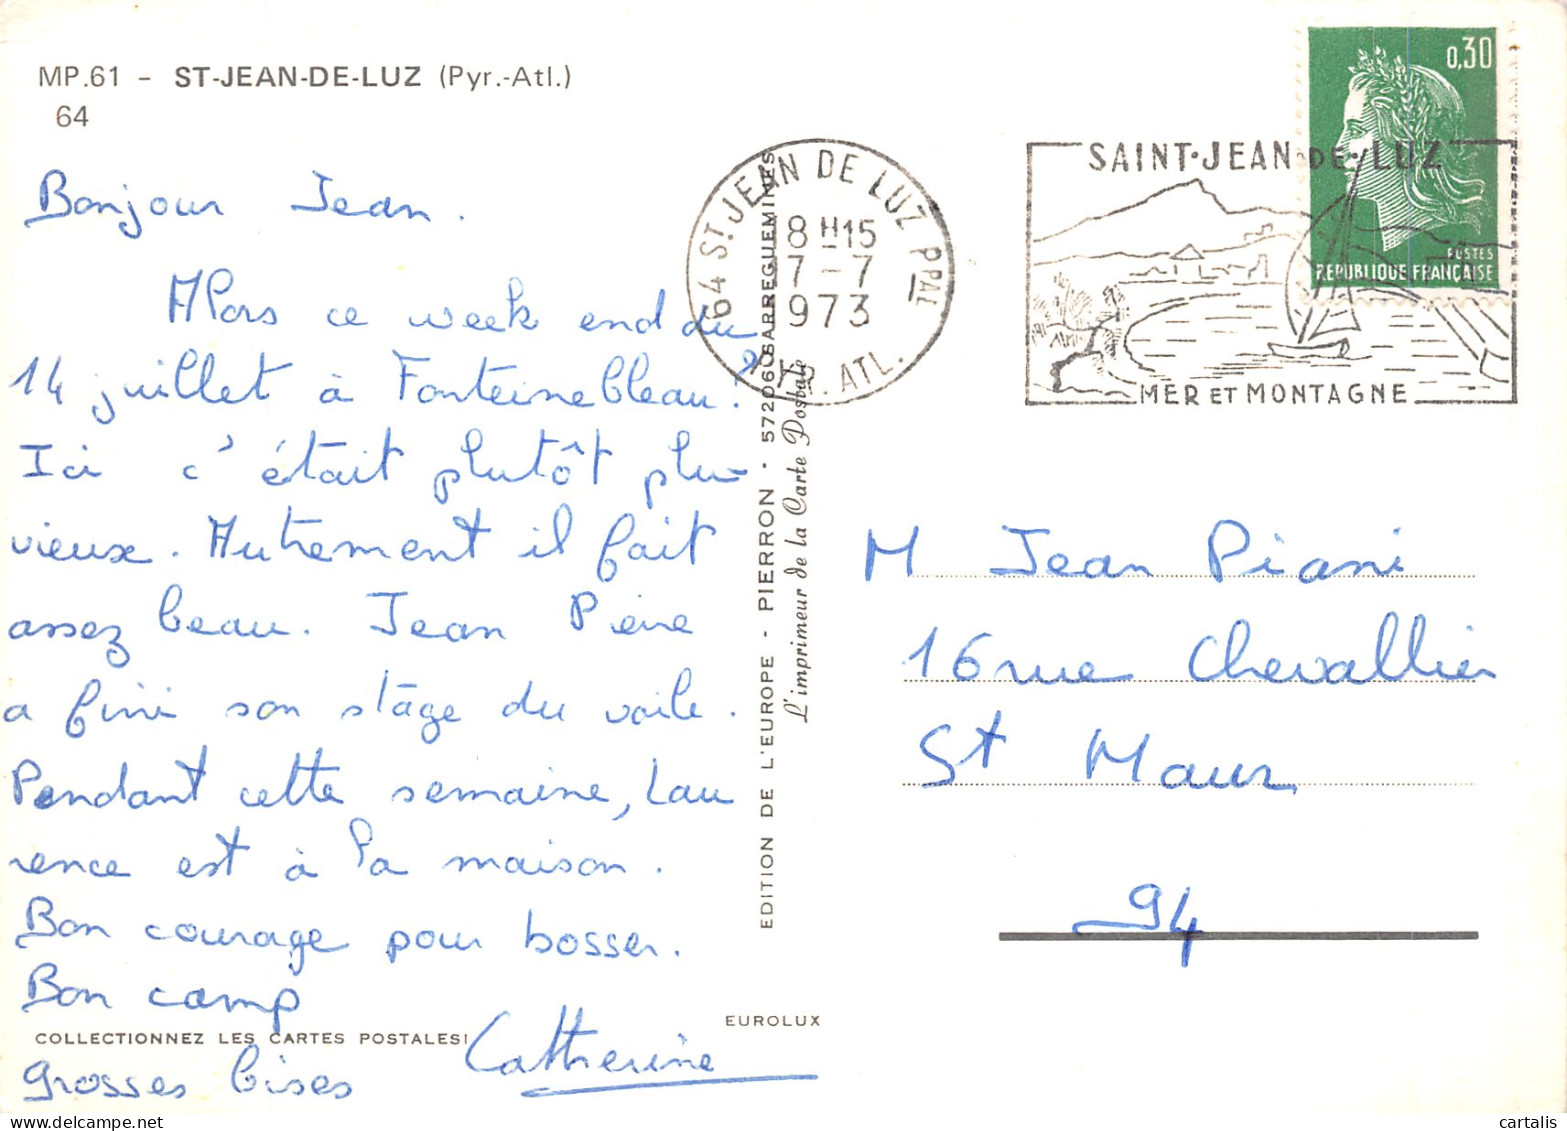 MP.61 - ST-JEAN-DE-LUZ (Pyr.-Atl.)
64
Bonjour Jean.
Alors ce week end du
14 juillet à Fontainebleau?
Ici c'était plutôt plu-
vieux. Autrement il fait
assez beau. Jean Pierre
a fini son stage du voile.
Pendant cette semaine, Lau
rence est à la maison.
Bon courage pour bosser.
Bon camp
COLLECTIONNEZ LES CARTES POSTALES!
grosses bises Catherine
EUROLUX
EDITION DE L'EUROPE - PIERRON • 57206 SARREGUEMINES
L'imprimeur de la Carte Postale
64 ST. JEAN DE LUZ PPAL
8H15
7-7
1973
PYR. ATL.
SAINT-JEAN-DE-LUZ
MER ET MONTAGNE
0,30
POSTES
REPUBLIQUE FRANÇAISE
M Jean Piani
16 rue Chevallier
St Maur
94
cartalis